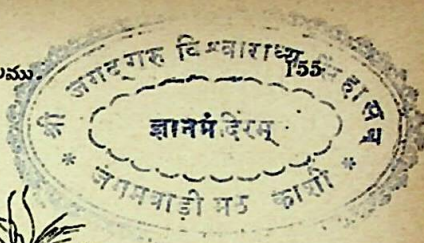 లము.
155
श्री जगद्गुरु विश्वाराध्य सिंहासन
ज्ञानमंदिरम्
* जंगमवाड़ी मठ काशी *